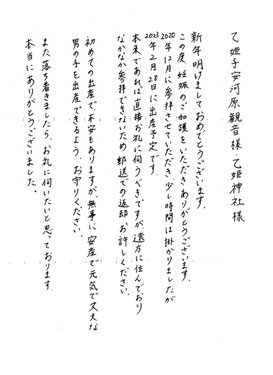 乙姫子安河原観音様 乙姫神社様
新年明けましておめでとうございます。
この度 妊娠のご加護をいただきありがとうございます。
2020年12月に参拝させていただき少し時間は掛かりましたが
2023年2月28日に出産予定です。
本来であれば直接お礼に伺うべきですが、遠方に住んでおり
なかなか参拝できないため郵送での返却お許しください。
初めての出産で不安もありますが、無事に安産で元気で丈夫な
男の子を出産できるよう、お守りください。
また落ち着きましたら、お礼に伺いたいと思っております。
本当にありがとうございました。